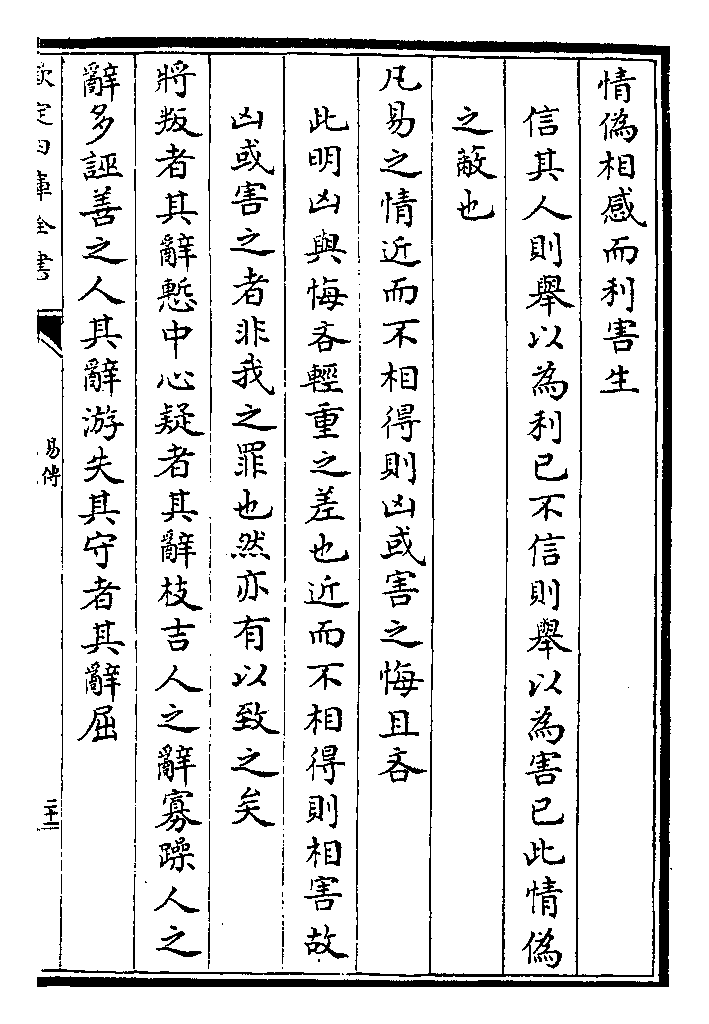 情偽相感而利害生
信其人則舉以為利已不信則舉以為害已此情偽
之蔽也
凡易之情近而不相得則凶或害之悔且吝
此明凶與悔吝輕重之差也近而不相得則相害故
凶或害之者非我之罪也然亦有以致之矣
將叛者其辭慙中心疑者其辭枝吉人之辭寡躁人之
辭多誣善之人其辭游失其守者其辭屈
欽定四庫全書
易傳
二十二